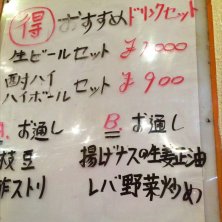 得 おすすめドリンクセット
生ビールセット ¥1000
酎ハイ
ハイボール セット ¥900
A. お通し B お通し
枝豆 揚げナスの生姜正油
炸ストリ レバ野菜炒め